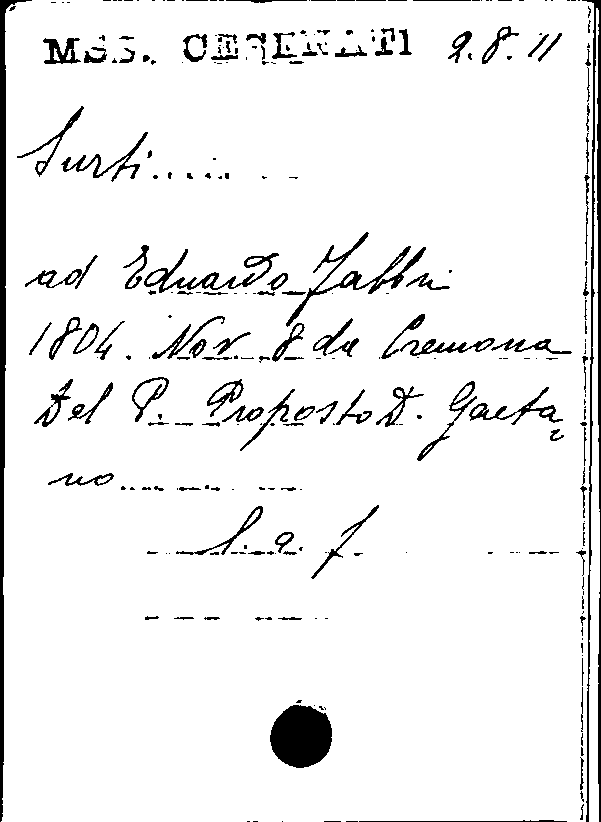 MSS. CESENATI 2.8.11
Surti.......
ad Eduardo Fabbri
1804. Nov. 8 da Cremona
Del P. Proposto D. Gaeta=
no......
l. a. f.